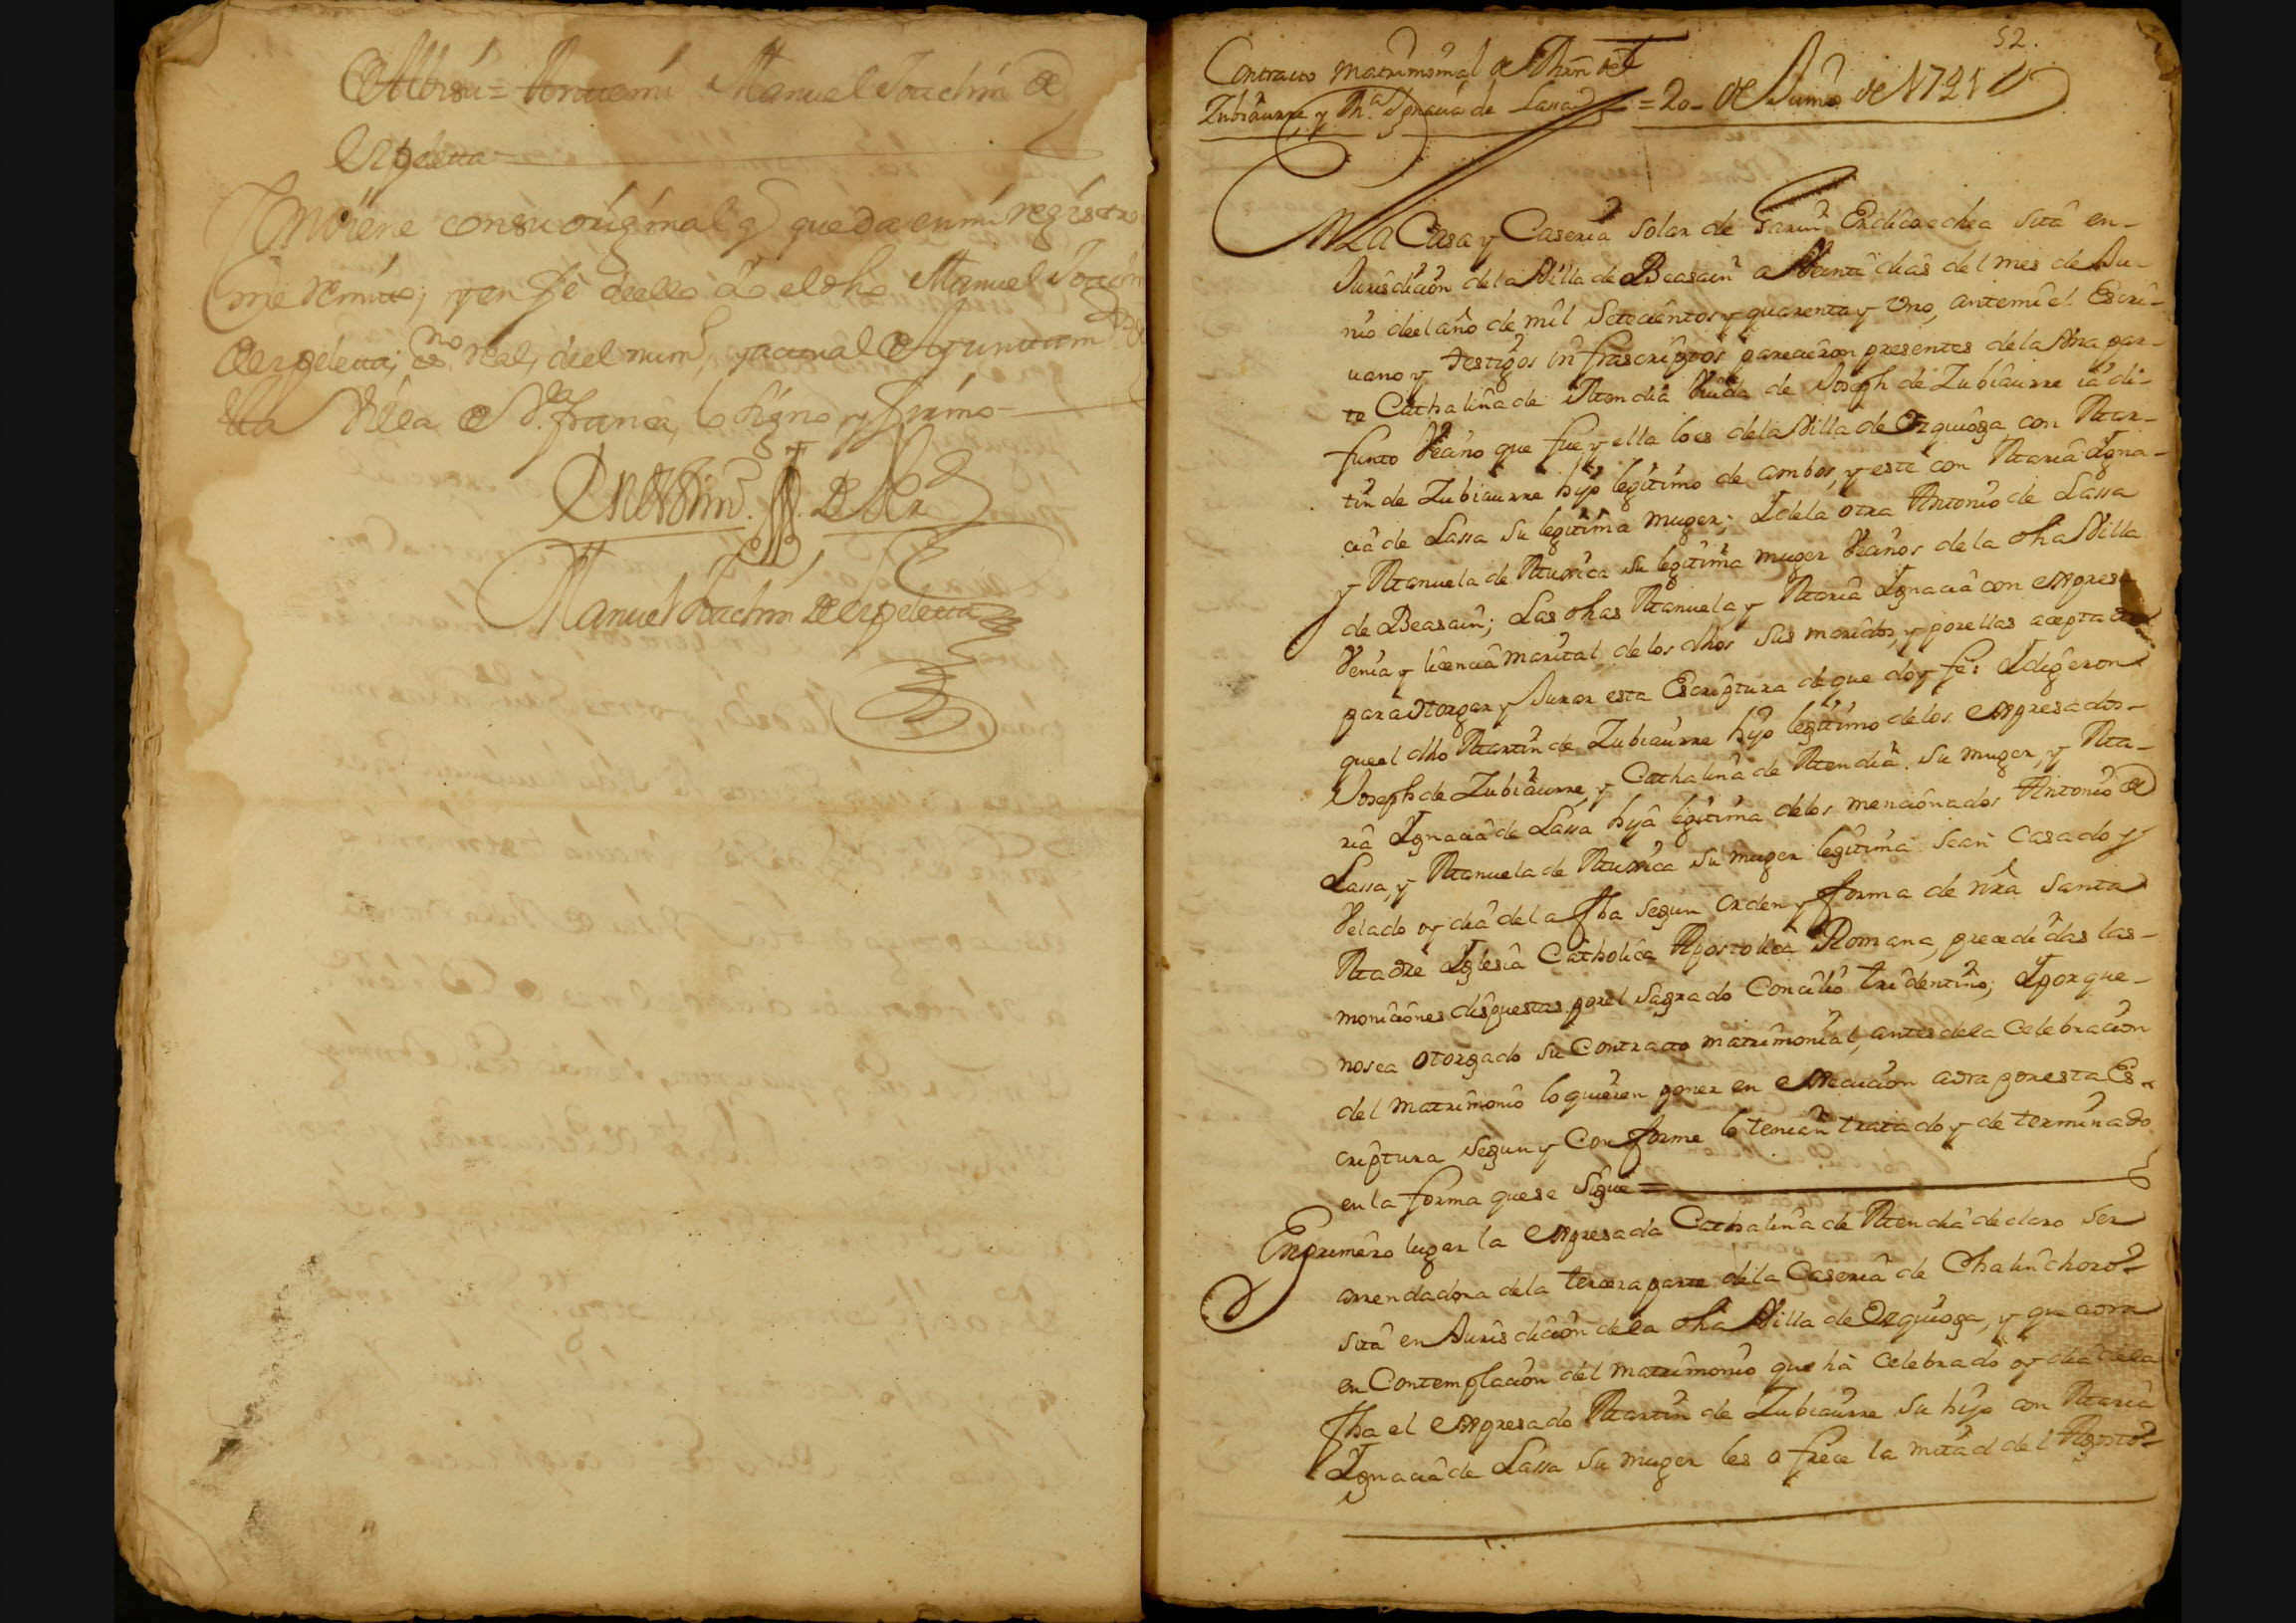 Albisu = Antemi Manuel Joachin de
Urpeleta
Conviene con su original q queda en mi registro
me remito; y en fe de ello Yo el dho Manuel Joachin
de Urpeleta; essno real, del num.º, y actual de Ayuntam.
Villa de V.ª franca, lo signo y firmo
En testim.º de Ver.d
Manuel Joachin de Urpeleta
52.
Contracto matrimonial de Mrñ de
Zubiaurre y M.ª Ygnacia de Lassa = 20 de Junio de 1741
En la Casa y Caseria solar de Erdicoechea sita en-
Jurisdicion de la Villa de Beasain a Veinte dias del mes de Ju-
nio de el año de mil Setecientos y quarenta y Uno, ante mi el Escri-
uano y testigos infrascriptos parecieron presentes de la Una par-
te Cathalina de Mendia Viuda de Joseph de Zubiaurre ia di-
funto Vecino que fue, y ella lo es de la Villa de Ozquioga, con Mar-
tin de Zubiaurre hijo legitimo de ambos, y este con Maria Ygna-
cia de Lassa su legitima muger; Y de la otra Antonio de Lassa
y Manuela de Muxica su legitima muger Vecinos de la dha Villa
de Beasain; Las dhas Manuela y Maria Ygnacia con expresa
Venia y licencia marital de los dhos sus maridos, y por ellas aceptada
para otorgar y Jurar esta Escriptura de que doy fe: Y digeron
que el dho Martin de Zubiaurre hijo legitimo de los expresados-
Joseph de Zubiaurre, y Cathalina de Mendia su muger, y Ma-
ria Ygnacia de Lassa hija legitima de los mencionados Antonio de
Lassa, y Manuela de Muxica su muger legitima sean Casado y
Velado oy dia de la fha segun orden y forma de nrã Santa
Madre Yglesia Catholica Apostolica Romana, precedidas las-
moniciones dispuestas por el Sagrado Concilio tridentino; Y porque-
nosea otorgado su Contracto matrimonial, antes de la Celebracion
del matrimonio lo quieren poner en execucion aora por esta Es-
criptura segun y Conforme lo tenian tratado y determinado
en la forma que se sigue =
En primero lugar la expresada Cathalina de Mendia declaro ser
arrendadora de la tercera parte de la Caseria de Chalinchoro
sita en Jurisdicion de la dha Villa de Ozquioga, y que aora
en Contemplacion del matrimonio que ha Celebrado oy dia de la
fha el expresado Martin de Zubiaurre su hijo con Maria
Ygnacia de Lassa su muger les ofrece la mitad del Agosto